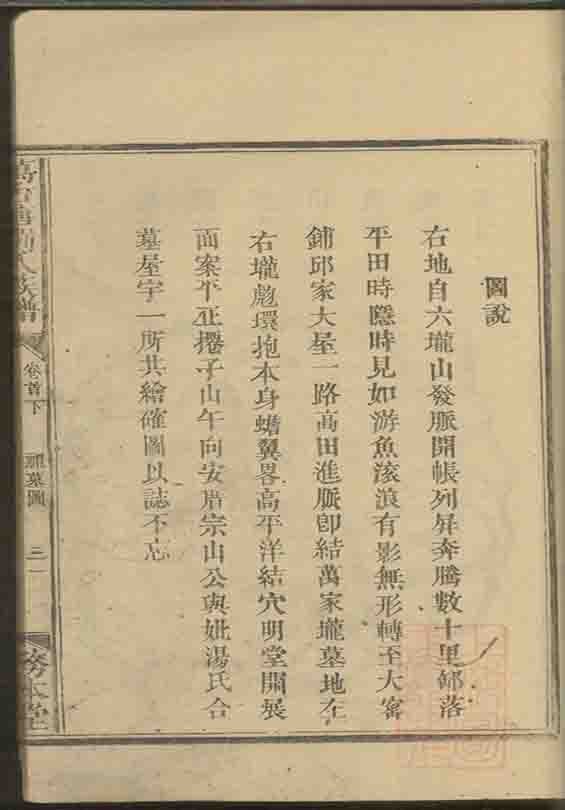 圖說
右地自六壠山發脈開帳列屏奔騰數十里卸落
平田時隱時見如游魚滚浪有影無形轉至大窰
鋪邱家大屋一路高田進脈卽結萬家壠墓地左
右壠彪環抱本身蟾翼畧高平洋結穴明堂開展
面案平正擡子山午向安厝宗山公與妣湯氏合
墓屋宇一所共繪確圖以誌不忘
氏族譜
卷首下
墓圖
三
務本堂